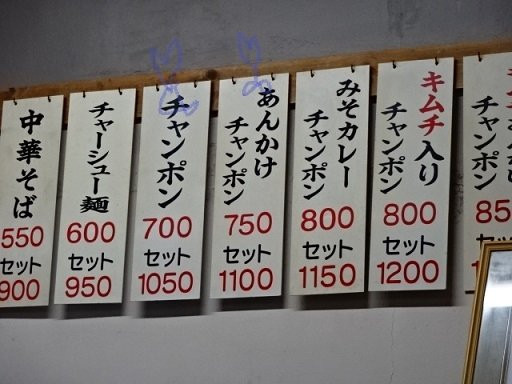 中華そば
550
セット
900
チャーシュー麺
600
セット
950
チャンポン
700
セット
1050
あんかけ
チャンポン
750
セット
1100
みそカレー
チャンポン
800
セット
1150
キムチ入り
チャンポン
800
セット
1200